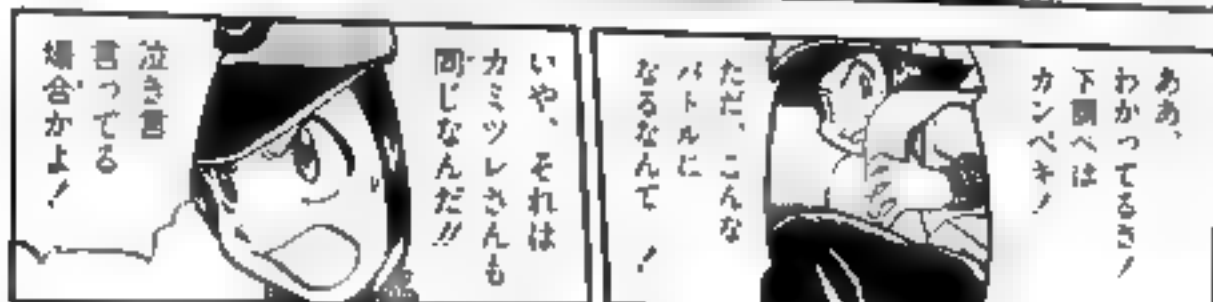 ああ、
わかってるさ！
下調べは
カンペキ！
ただ、こんな
バトルに
なるなんて！
いや、それは
カミツレさんも
同じなんだ!!
泣き言
言ってる
場合かよ！